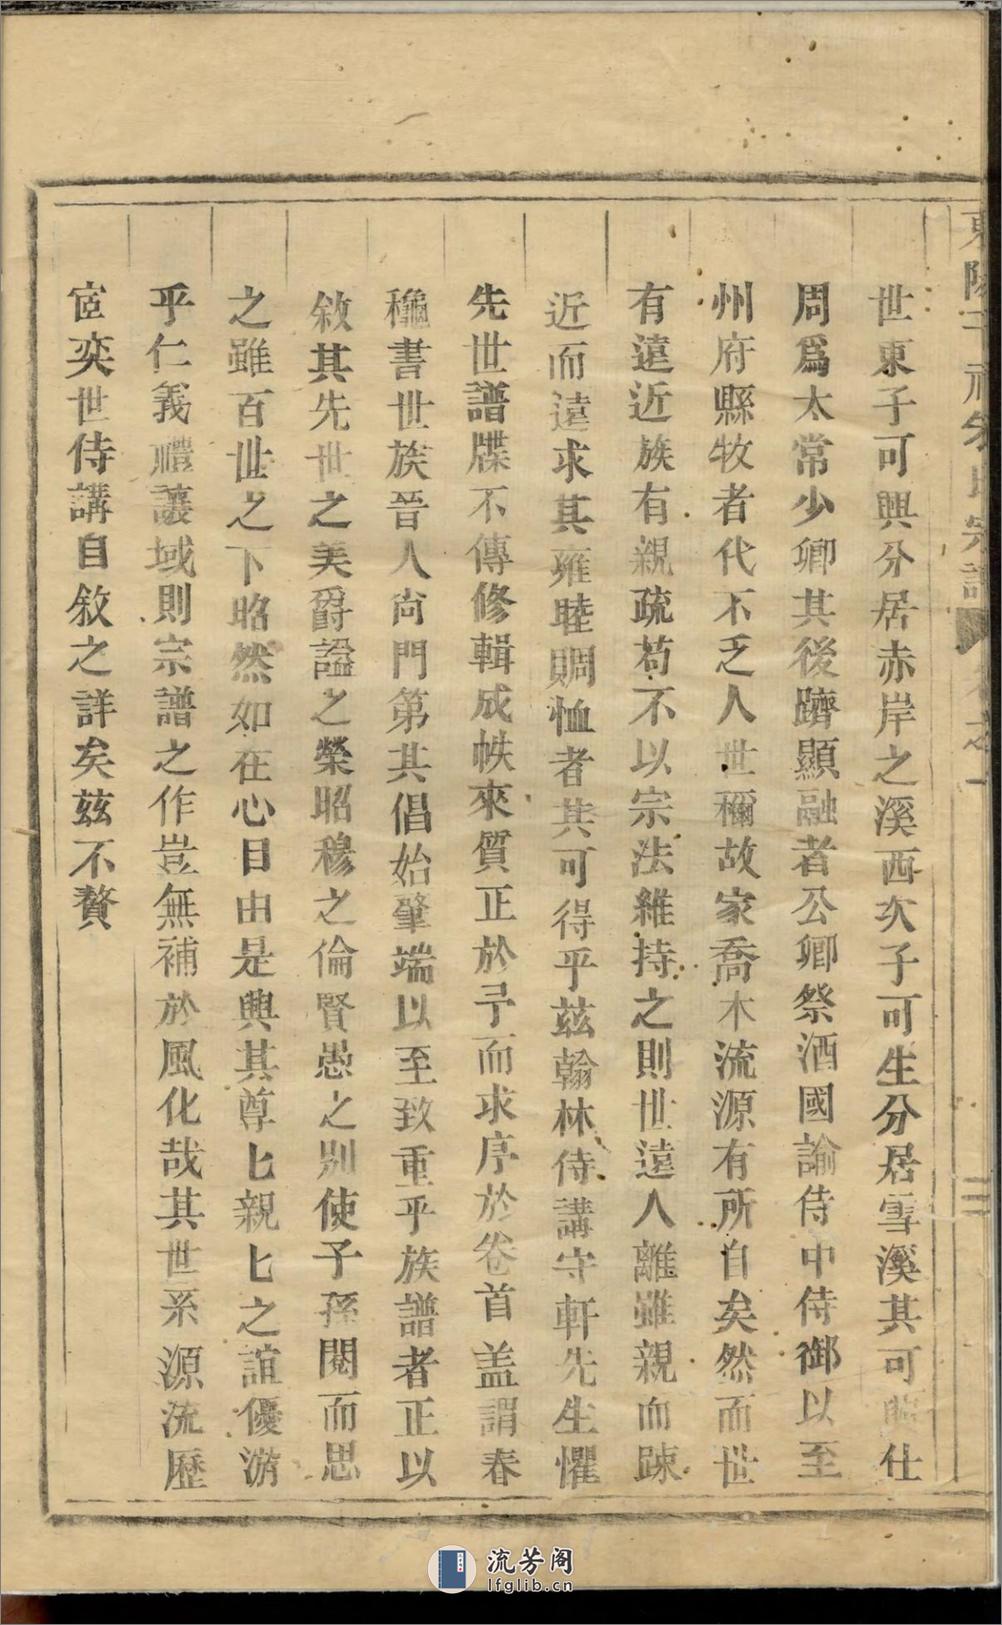 世東子可興分居赤岸之溪西次子可生分居雪溪其可 仕
周爲太常少卿其後躋顯融者公卿祭酒國諭侍中侍御以至
州府縣牧者代不乏人世禰故家喬木流源有所自矣然而世
有遠近族有親疏苟不以宗法維持之則世遠人離雖親而踈
近而遠求其雍睦賙恤者其可得乎茲翰林侍講守軒先生懼
先世譜牒不傳修輯成帙來質正於予而求序於卷首盖謂春
龝書世族晉人尚門第其倡始肇端以至致重乎族譜者正以
敘其先世之美爵謚之榮昭穆之倫賢愚之别使子孫閱而思
之雖百世之下昭然如在心目由是興其尊匕親匕之誼優游
乎仁義禮讓域則宗譜之作豈無補於風化哉其世系源流歷
宦奕世侍講自敘之詳矣茲不贅
流芳阁
lfglib.cn